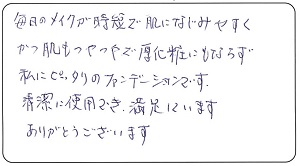 毎日のメイクが時短で肌になじみやすく
かつ肌もつやつやで厚化粧にもならず
私にぴったりのファンデーションです。
清潔に使用でき、満足しています
ありがとうございます